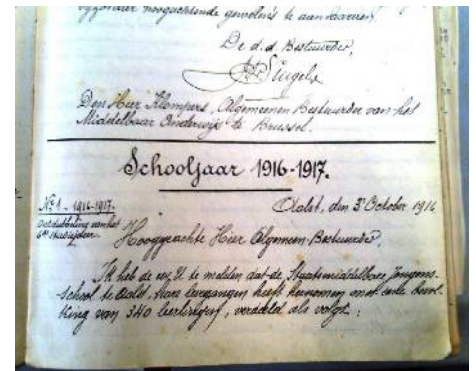 bijzonder hoogachtende gevoelens te aanvaarden.
De d.d. Bestuurder,
Den Heer Klompers, Algemeenen Bestuurder van het
Middelbaar Onderwijs te Brussel.
Schooljaar 1916-1917.
Nº 1 - 1916-1917.
Ontdubbeling van het
6de Studiejaar.
Aalst, den 3n October 1916
Hooggeachte Heer Algemeen-Bestuurder,
Ik heb de eer, U te melden dat de Staatsmiddelbare Jongens-
school te Aalst, hare leergangen heeft hernomen met eene bevol-
king van 340 leerlingen, verdeeld als volgt: